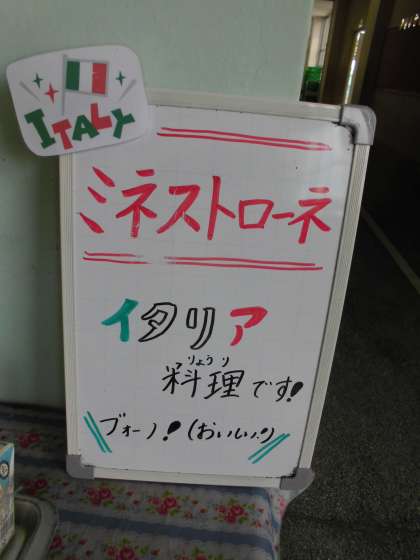 ITALY
ミネストローネ
イタリア
りょうり
料理です!
ブォーノ! (おいしい!)